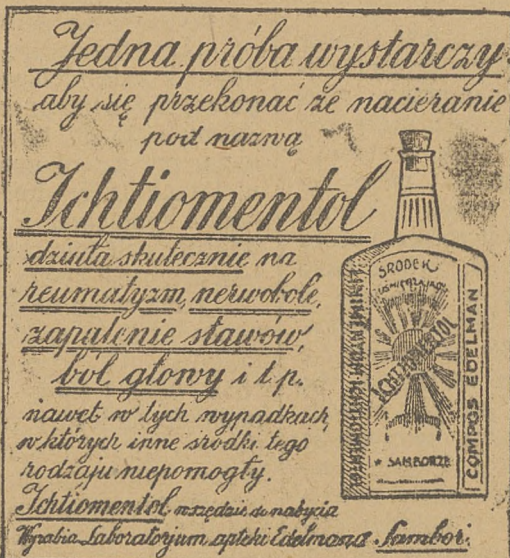 Jedna próba wystarczy
aby się przekonać że nacieranie
pod nazwą
Ichtiomentol
działa skutecznie na
reumatyzm, nerwobole,
zapalenie stawów,
ból głowy i t.p.
nawet w tych wypadkach,
w których inne środki tego
rodzaju niepomogły.
Ichtiomentol wszędzie do nabycia
Wyrabia Laboratoryum apteki Edelmana Sambor.
ŚRODEK
UŚMIERZAJĄCY
ICHTIOMENTOL
SAMBORZE
COMPOS EDELMAN